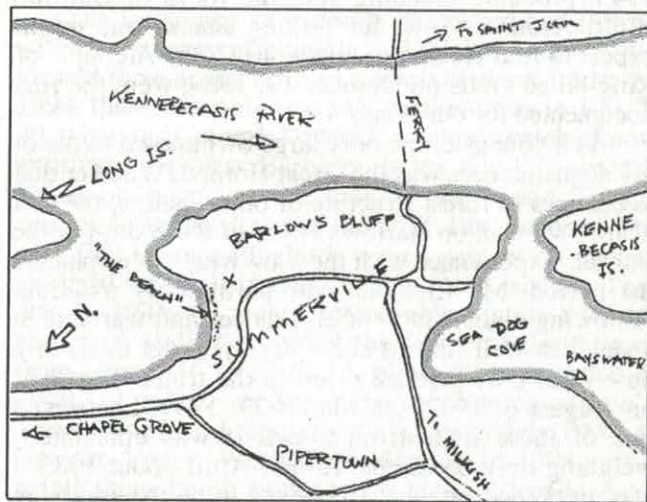 TO SAINT JOHN
KENNEBECASIS RIVER
FERRY
LONG IS.
BARLOW'S BLUFF
KENNE
BECASIS
IS.
"THE BEACH"
SUMMERVILLE
N.
SEA DOG
COVE
BAYSWATER
CHAPEL GROVE
PIPERTOWN
TO MILKISH